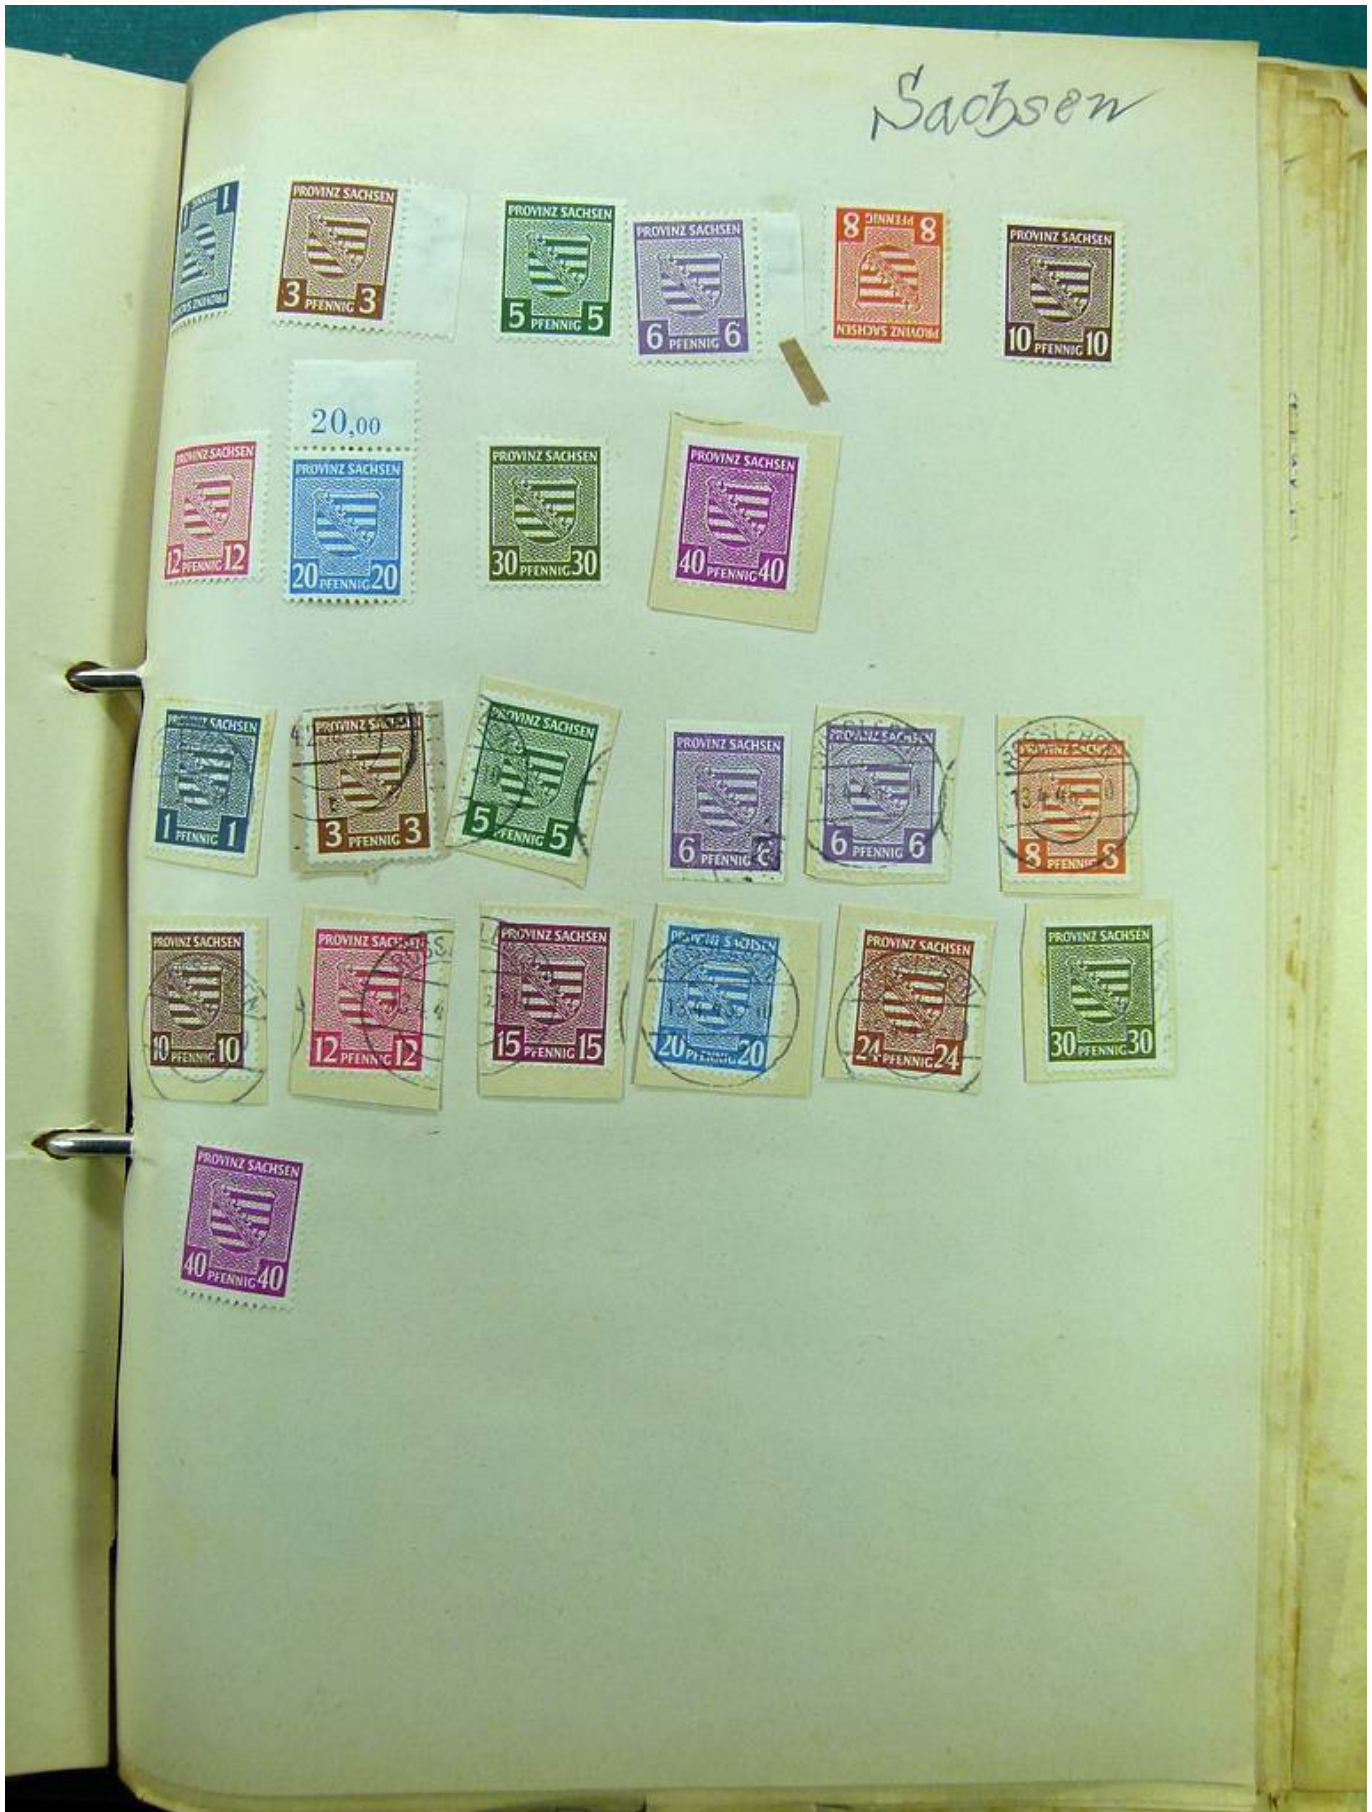 Sachsen
1 PFENNIG 1
PROVINZ SACHSEN
PROVINZ SACHSEN
3 PFENNIG 3
PROVINZ SACHSEN
5 PFENNIG 5
PROVINZ SACHSEN
6 PFENNIG 6
8 PFENNIG 8
PROVINZ SACHSEN
PROVINZ SACHSEN
10 PFENNIG 10
PROVINZ SACHSEN
12 PFENNIG 12
20,00
PROVINZ SACHSEN
20 PFENNIG 20
PROVINZ SACHSEN
30 PFENNIG 30
PROVINZ SACHSEN
40 PFENNIG 40
PROVINZ SACHSEN
1 PFENNIG 1
PROVINZ SACHSEN
3 PFENNIG 3
PROVINZ SACHSEN
5 PFENNIG 5
PROVINZ SACHSEN
6 PFENNIG 6
PROVINZ SACHSEN
6 PFENNIG 6
PROVINZ SACHSEN
8 PFENNIG 8
13.4.46
PROVINZ SACHSEN
10 PFENNIG 10
PROVINZ SACHSEN
12 PFENNIG 12
PROVINZ SACHSEN
15 PFENNIG 15
PROVINZ SACHSEN
20 PFENNIG 20
PROVINZ SACHSEN
24 PFENNIG 24
PROVINZ SACHSEN
30 PFENNIG 30
PROVINZ SACHSEN
40 PFENNIG 40